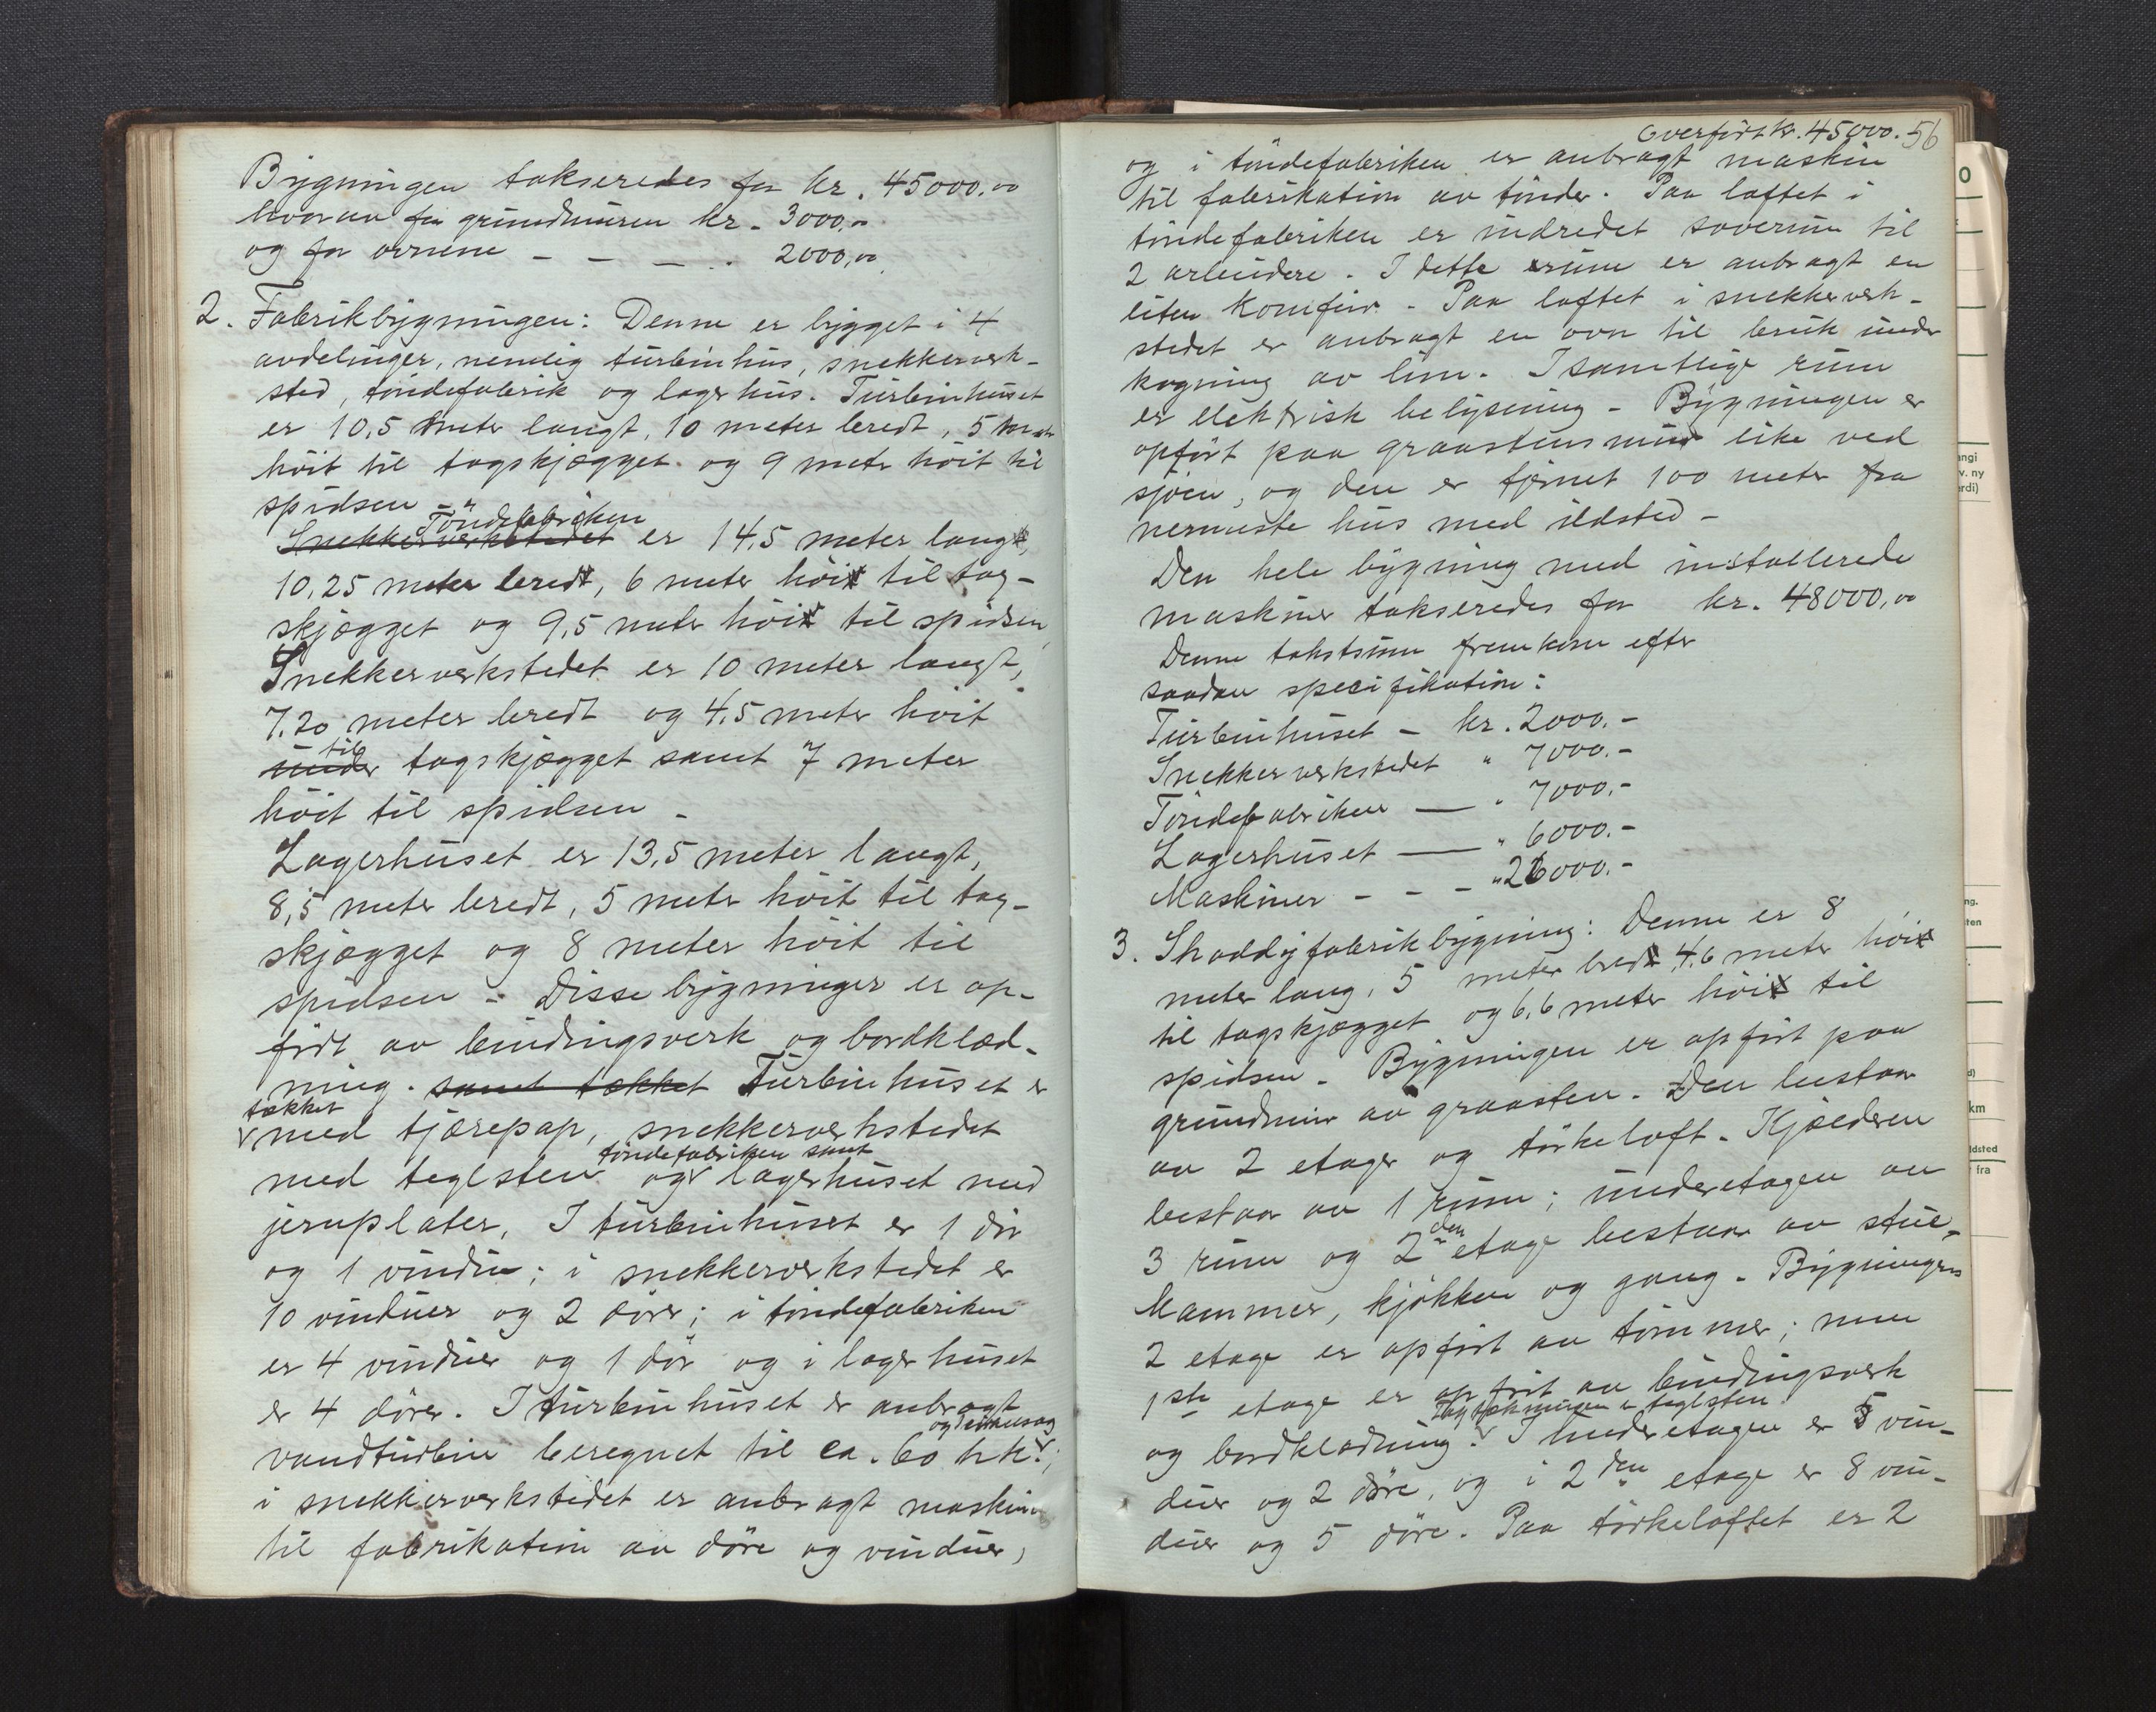 Bygningen takseredes for kr. 45000.00
hvorav for grundmuren kr. 3000,00
og for ovnene - - - .. 2000,00
2. Fabrikbygningen: Denne er bygget i 4
avdelinger, nemlig turbinhus, snekkerverk-
sted, töndefabrik og lagerhus. Turbinhuset
er 10,5 meter langt, 10 meter bredt, 5 meter
höit til tagskjægget og 9 meter höit til
spidsen -
Töndefabriken
Snekkerverkstedet er 14,5 meter lang,
10,25 meter bred, 6 meter höi til tag-
skjægget og 9,5 meter höi til spidsen,
Snekkerverkstedet er 10 meter langt,
7.20 meter bredt og 4,5 meter höit
til
under tagskjægget samt 7 meter
höit til spidsen -
Lagerhuset er 13,5 meter langt,
8,5 meter bredt, 5 meter höit til tag-
skjægget og 8 meter höit til
spidsen - Disse bygninger er op-
fört av bindingsverk og bordklæd-
ning. samt tækket Turbinhuset er
tækket
med tjærepap, snekkerverkstedet
töndefabriken samt
med teglsten og lagerhuset med
jernplater. I turbinhuset er 1 dör
og 1 vindu; i snekkerverkstedet er
10 vinduer og 2 dörer; i töndefabriken
er 4 vinduer og 1 dör og i lagerhuset
er 4 dörer. I turbinhuset er anbragt
og
vandturbin beregnet til ca. 60 h.k.;
i snekkerverkstedet er anbragt maskiner
til fabrikation av döre og vinduer,
Overfört kr. 45000. 56
og i töndefabriken er anbragt maskin
til fabrikation av tönder. Paa loftet i
töndefabriken er indredet soverum til
2 arbeidere. I dette rum er anbragt en
liten komfur - Paa loftet i snekkerverk-
stedet er anbragt en ovn til bruk under
kogning av lim. I samtlige rum
er elektrisk belysning - Bygningen er
opfört paa graastensmur like ved
sjöen, og den er fjernet 100 meter fra
nermeste hus med ildsted -
Den hele bygning med installerede
maskiner takseredes for kr. 48000,00
Denne takstsum fremkom efter
saadan specifikation:
Turbinhuset - kr. 2000.-
Snekkerverkstedet " 7000.-
Töndefabriken — " 7000.-
Lagerhuset — " 6000.-
Maskiner - - - " 26000.-
3. Shoddyfabrikbygning: Denne er 8
meter lang, 5 meter bred, 4,6 meter höi
til tagskjægget og 6,6 meter höi til
spidsen. Bygningen er opfört paa
grundmur av graasten. Den bestaar
av 2 etager og törkeloft. Kjælderen
bestaar av 1 rum; underetagen av
3 rum og 2den etage bestaar av stue,
kammer, kjökken og gang. Bygningens
2 etage er opfört av tömmer; men
1ste etage er opfört av bindingsverk
Tagtækningen er teglsten.
og bordklædning. I underetagen er 5 vin-
duer og 2 döre, og i 2den etage er 8 vin-
duer og 5 döre. Paa törkeloftet er 2